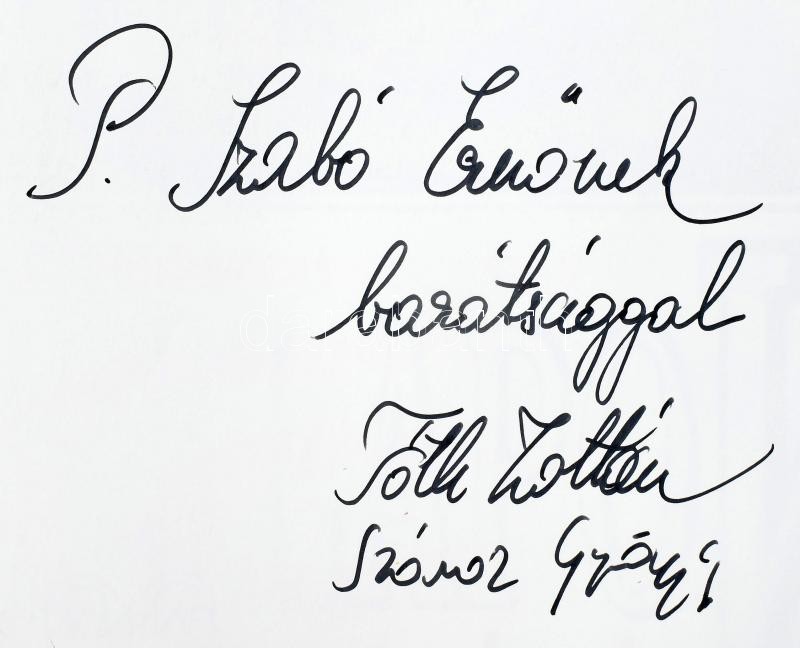 P. Szabó Ernőnek
barátsággal
Tóth Zoltán
Száraz György